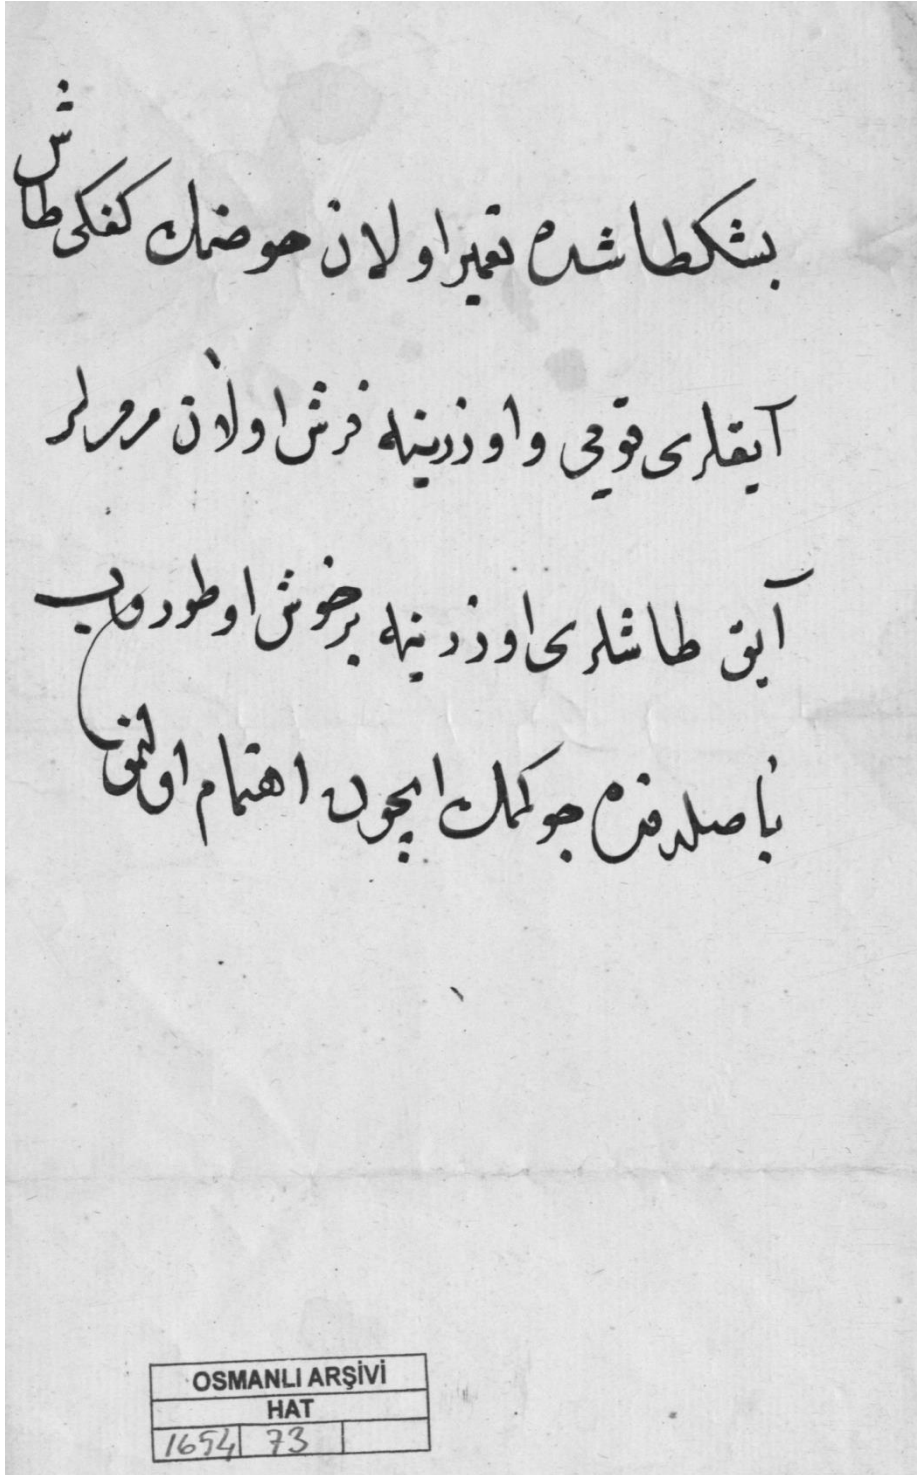 بشكطاشده تعمير اولان حوضك كفكى طاش
آيقلرى قومى و اوزرينه فرش اولان مرمرلر
آيق طاشلرى اوزرينه برخوش اوطوروب
باصلدقده چوكمك ايچون اهتمام اولنمق
OSMANLI ARŞİVİ
HAT
1654 73